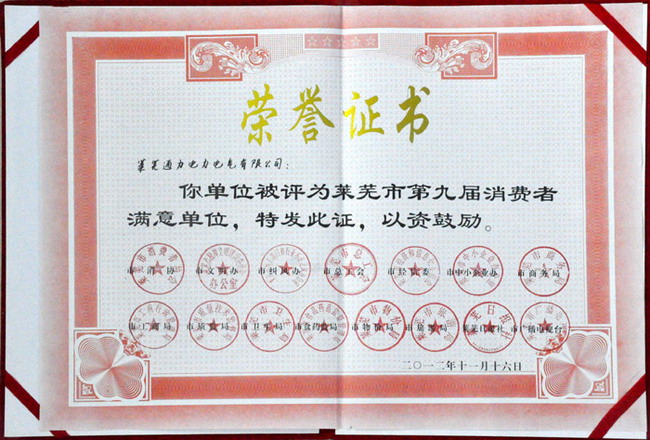 荣誉证书
莱芜通力电力电气有限公司：
你单位被评为莱芜市第九届消费者
满意单位，特发此证，以资鼓励。
市消协 市文明办 市纠风办 市总工会 市经信委 市中小企业办 市商务局
市工商局 市质监局 市卫生局 市食药监局 市物价局 市旅游局 莱芜日报社 市广播电视台
二〇一二年十一月十六日